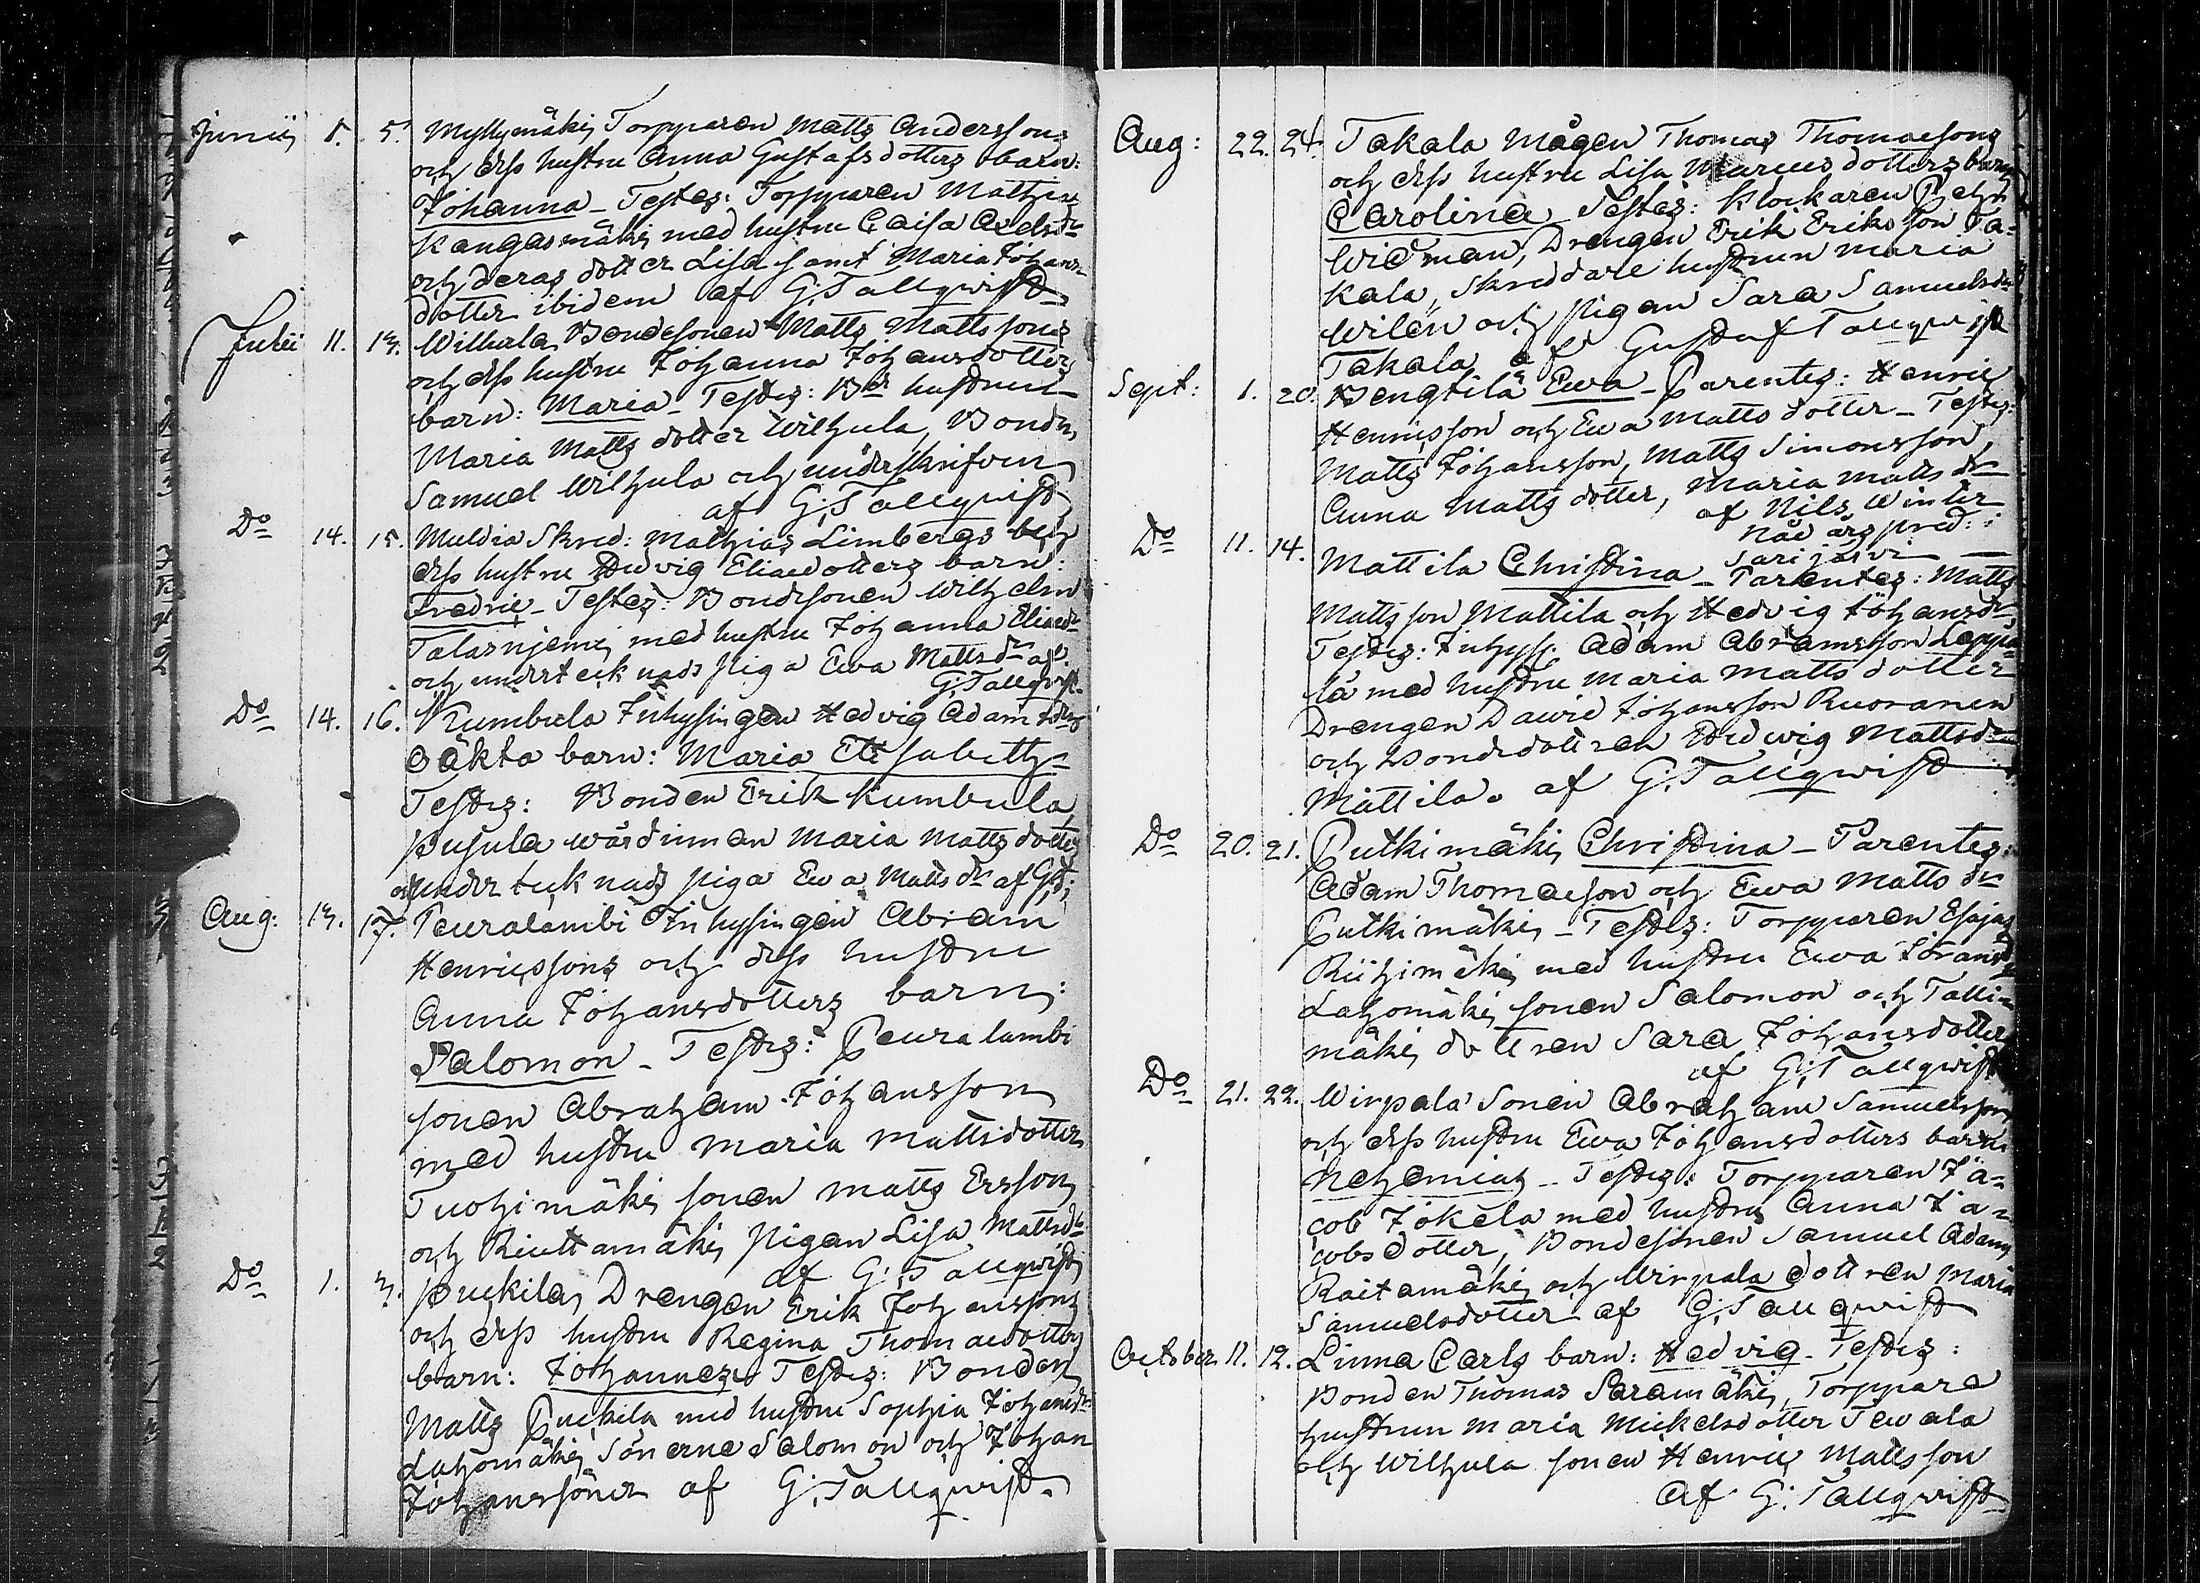 Junii 5. 5. Myllymäki Torpparen Matts Anderssons
och dess hustru Anna Gustafsdotters barn:
Johanna – Testes: Torpparen Mathias
Kangasmäki med hustru Caisa Axelsdr
och deras dotter Lisa samt Maria Johans
dotter ibidem af G: Tallqwist
Julii 11. 13. Wilhula Bondesonen Matts Mattssons
och dess hustru Johanna Johansdotters
barn: Maria – Testes: Bde hustrun
Maria Matts dotter Wilhula, Bonden
Samuel Wilhula och underskrifven
af G: Tallqwist
Do 14. 15. Muldia Skred: Mathias Limbergs och
dess hustru Hedvig Eliaedotters barn:
Fredric – Testes: Bondesonen Wilhelm
Talasniemi med hustru Johanna Eliaedr
och undertecknads piga Ewa Mattsdr af
G: Tallqvist.
Do 14. 16. Kumbula Inhysingen Hedvig Adamsdrs
oäkta barn: Maria Elisabeth
Testes: Bonden Erik Kumbula
Pusula wärdinnan Maria Matts dotter
och undertecknads piga Ewa Matts dr af G:T:
Aug: 13. 17. Peuralambi Inhysingen Abram
Henricssons och dess hustru
Anna Johansdotters barn:
Salomon – Testes: Peuralambi
sonen Abraham Johansson
med hustru Maria Mattsdotter
Tuohimäki sonen Matts Ersson
och Riuttamäki pigan Lisa Mattsdr
af G: Tallqwist
Do 1. 3. Puckila Drengen Erik Johanssons
och dess hustru Regina Thomaedotters
barn: Johannes Testes: Bonden
Matts Puckila med hustru Sophia Johansdr
Lahomäki Sönerne Salomon och Johan
Johanssöner af G: Tallqwist.
Aug: 22. 24. Takala Mågen Thomas Thomaesons
och dess hustru Lisa Marcusdotters barn
Carolina Testes: Klockaren
Widman, Drengen Erik Eriksson Ta-
kala, Skreddare hustrun Maria
Wilén och pigan Sara Samuelsdr
Takala af Gustaf Tallqwist
Sept: 1. 20. Bengtilä Ewa – Parentes: Henric
Henricsson och Ewa Matts dotter – Testes:
Matts Johansson, Matts Simonsson,
Anna Matts dotter, Maria Matts dr
af Nils Winter
Nåd års pred:
Sarijärvi
Do 11. 14. Mattila Christina – Parentes: Matts
Mattsson Mattila och Hedvig Johansdr
Testes: Inhys: Adam Abramsson Leppä-
lä med hustru Maria Mattsdotter
Drengen Dawid Johansson Ruoranen
och Bondedottren Hedwig Mattsdr
Mattila. af G: Tallqwist
Do 20. 21. Putkimäki Christina – Parentes:
Adam Thomaeson och Ewa Matts dr
Putkimäki – Testes: Torpparen Esajas
Riihimäki med hustru Ewa Göransdr
Lahomäki sonen Salomon och Talli-
mäki dottren Sara Johansdotter
af G: Tallqwist
Do 21. 22. Wirpala Sonen Abraham Samuelssons
och dess hustru Ewa Johansdotters barn
Nehemiah – Testes: Torpparen Ja-
cob Jokela med hustru Anna Ja-
cobsdotter, Bondesonen Samuel Adams
Raitamäki och Wirpala dottren Maria
Samuelsdotter af G: Tallqwist
October 11. 12. Linna Carls barn: Hedvig – Testes:
Bonden Thomas Saramäki, Torppare
hustrun Maria Mickelsdotter Tewala
och Wilhula sonen Henric Mattsson
af G: Tallqwist